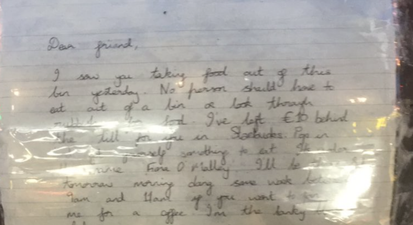 Dear friend,
I saw you taking food out of this
bin yesterday. No person should have to
eat out of a bin or look through
for food I've left €10 behind
the till for you in Starbucks. Pop in
yourself something to eat.
Fiona O Malley. I'll be
tomorrow morning doing some work between
10am and 11am if you want to
me for a coffee I'm the lanky